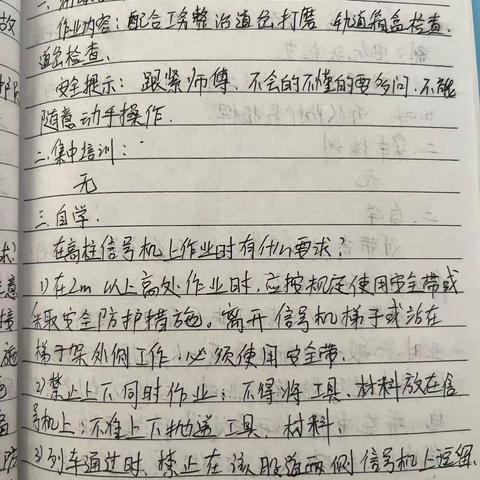 作业内容：配合工务整治道岔打磨、轨道箱盒检查、
道岔检查.
安全提示：跟紧师傅、不会的不懂的要多问、不能
随意动手操作.
二.集中培训：
无
三.自学.
在高柱信号机上作业时有什么要求？
1)在2m以上高处作业时、应按规定使用安全带或
采取安全防护措施。离开信号机梯子或站在
梯子架外侧工作、必须使用安全带.
2)禁止上下同时作业；不得将工具、材料放在信
号机上；不准上下抛递工具、材料；
3)列车通过时、禁止在该股道两侧信号机上逗留.